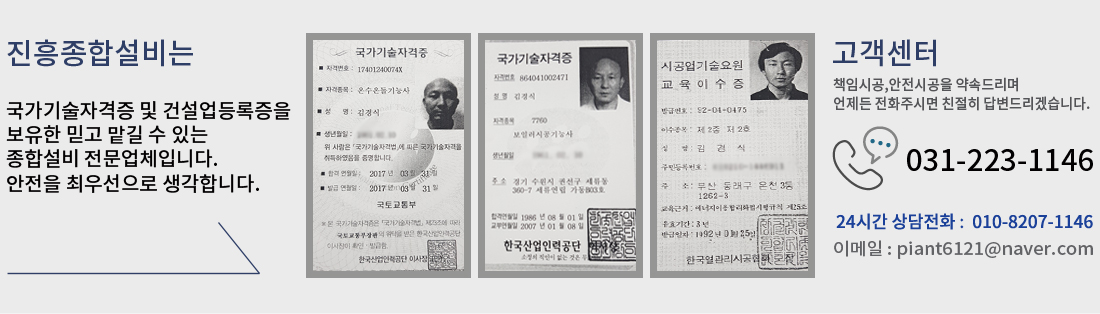 진흥종합설비는
국가기술자격증 및 건설업등록증을
보유한 믿고 맡길 수 있는
종합설비 전문업체입니다.
안전을 최우선으로 생각합니다.
국가기술자격증
자격번호 : 17401240074X
자격종목 : 온수온돌기능사
성 명 : 김경식
생년월일 :
위 사람은 「국가기술자격법」에 따른 국가기술자격을
취득하였음을 증명합니다.
합격 연월일 : 2017 년 03 월 31 일
발급 연월일 : 2017 년 03 월 31 일
국토교통부
한국산업인력공단 이사장
국가기술자격증
자격번호 864041002471
성명 김경식
자격종목 7760
보일러시공기능사
생년월일
주소 경기 수원시 권선구 세류동
360-7 세류연립 가동803호
합격연월일 1986 년 08 월 01 일
교부연월일 2007 년 01 월 08 일
한국산업인력공단
시공업기술요원
교육이수증
발급번호 : 92-04-0475
이수종목 : 제2종 제2호
성 명 : 김 경 식
주민등록번호 :
주 소 : 부산 동래구 온천3동
1262-3
유효기간 : 3년
발급일자 : 1992년 9월 25일
고객센터
책임시공,안전시공을 약속드리며
언제든 전화주시면 친절히 답변드리겠습니다.
031-223-1146
24시간 상담전화 : 010-8207-1146
이메일 : piant6121@naver.com